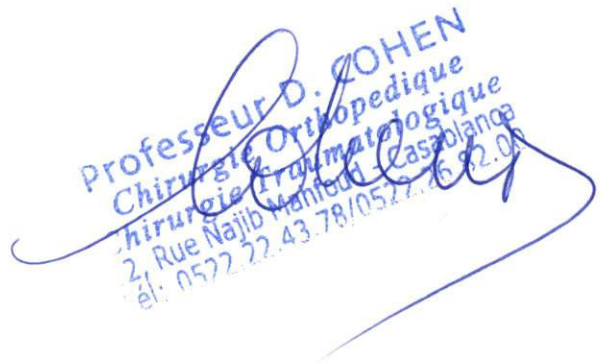 Professeur D. COHEN
Chirurgie Orthopedique
hirurgie Traumatologique
2, Rue Najib Manfoud - Casablanca
él: 0522.22.43.78/0522.26.82.06
Cohen